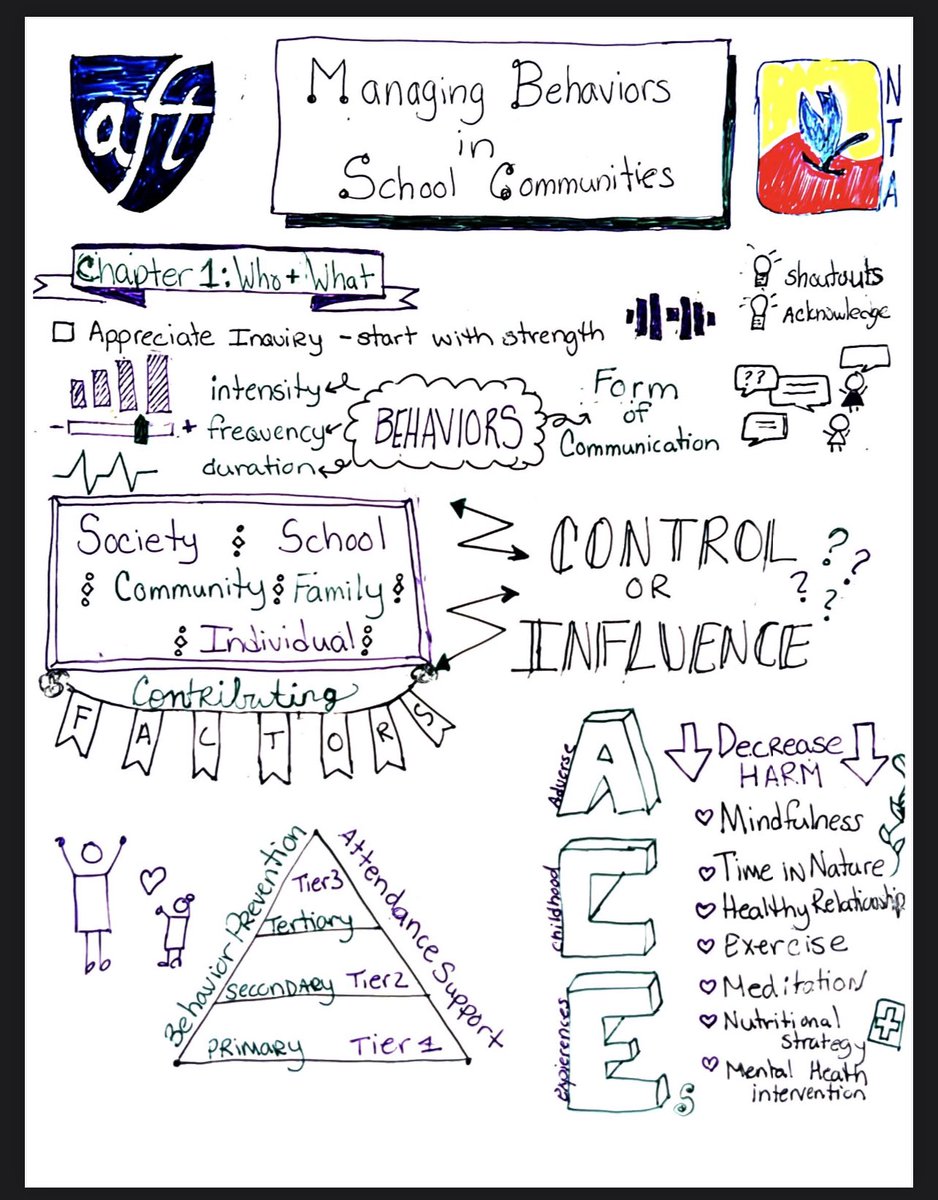 aft
Managing Behaviors
in
School Communities
NTA
Chapter 1: Who + What
shoutouts
Acknowledge
□ Appreciate Inquiry - start with strength
intensity
- + frequency
duration
BEHAVIORS
Form
of
Communication
??
Society School
Community Family
Individual
Contributing
FACTORS
CONTROL ??
OR ??
INFLUENCE
Adverse
A
childhood
C
expierences
Es
Decrease
HARM
Mindfulness
Time in Nature
Healthy Relationship
Exercise
Meditation
Nutritional
strategy
Mental Heath
intervention
Behavior Prevention
Attendance Support
Tier3
Tertiary
SECONDARY Tier2
PRIMARY Tier 1